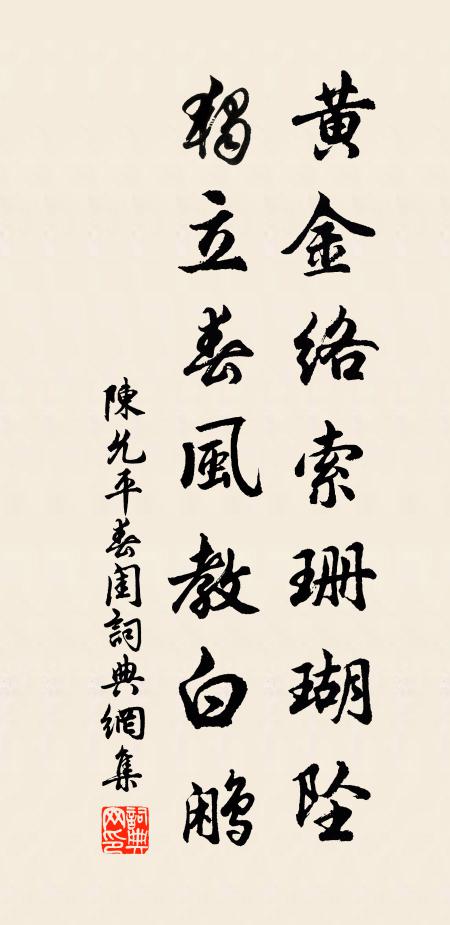 黃金絡索珊瑚墜
獨立春風教白鷴
陳允平春閨詞典網集
詞典
网印